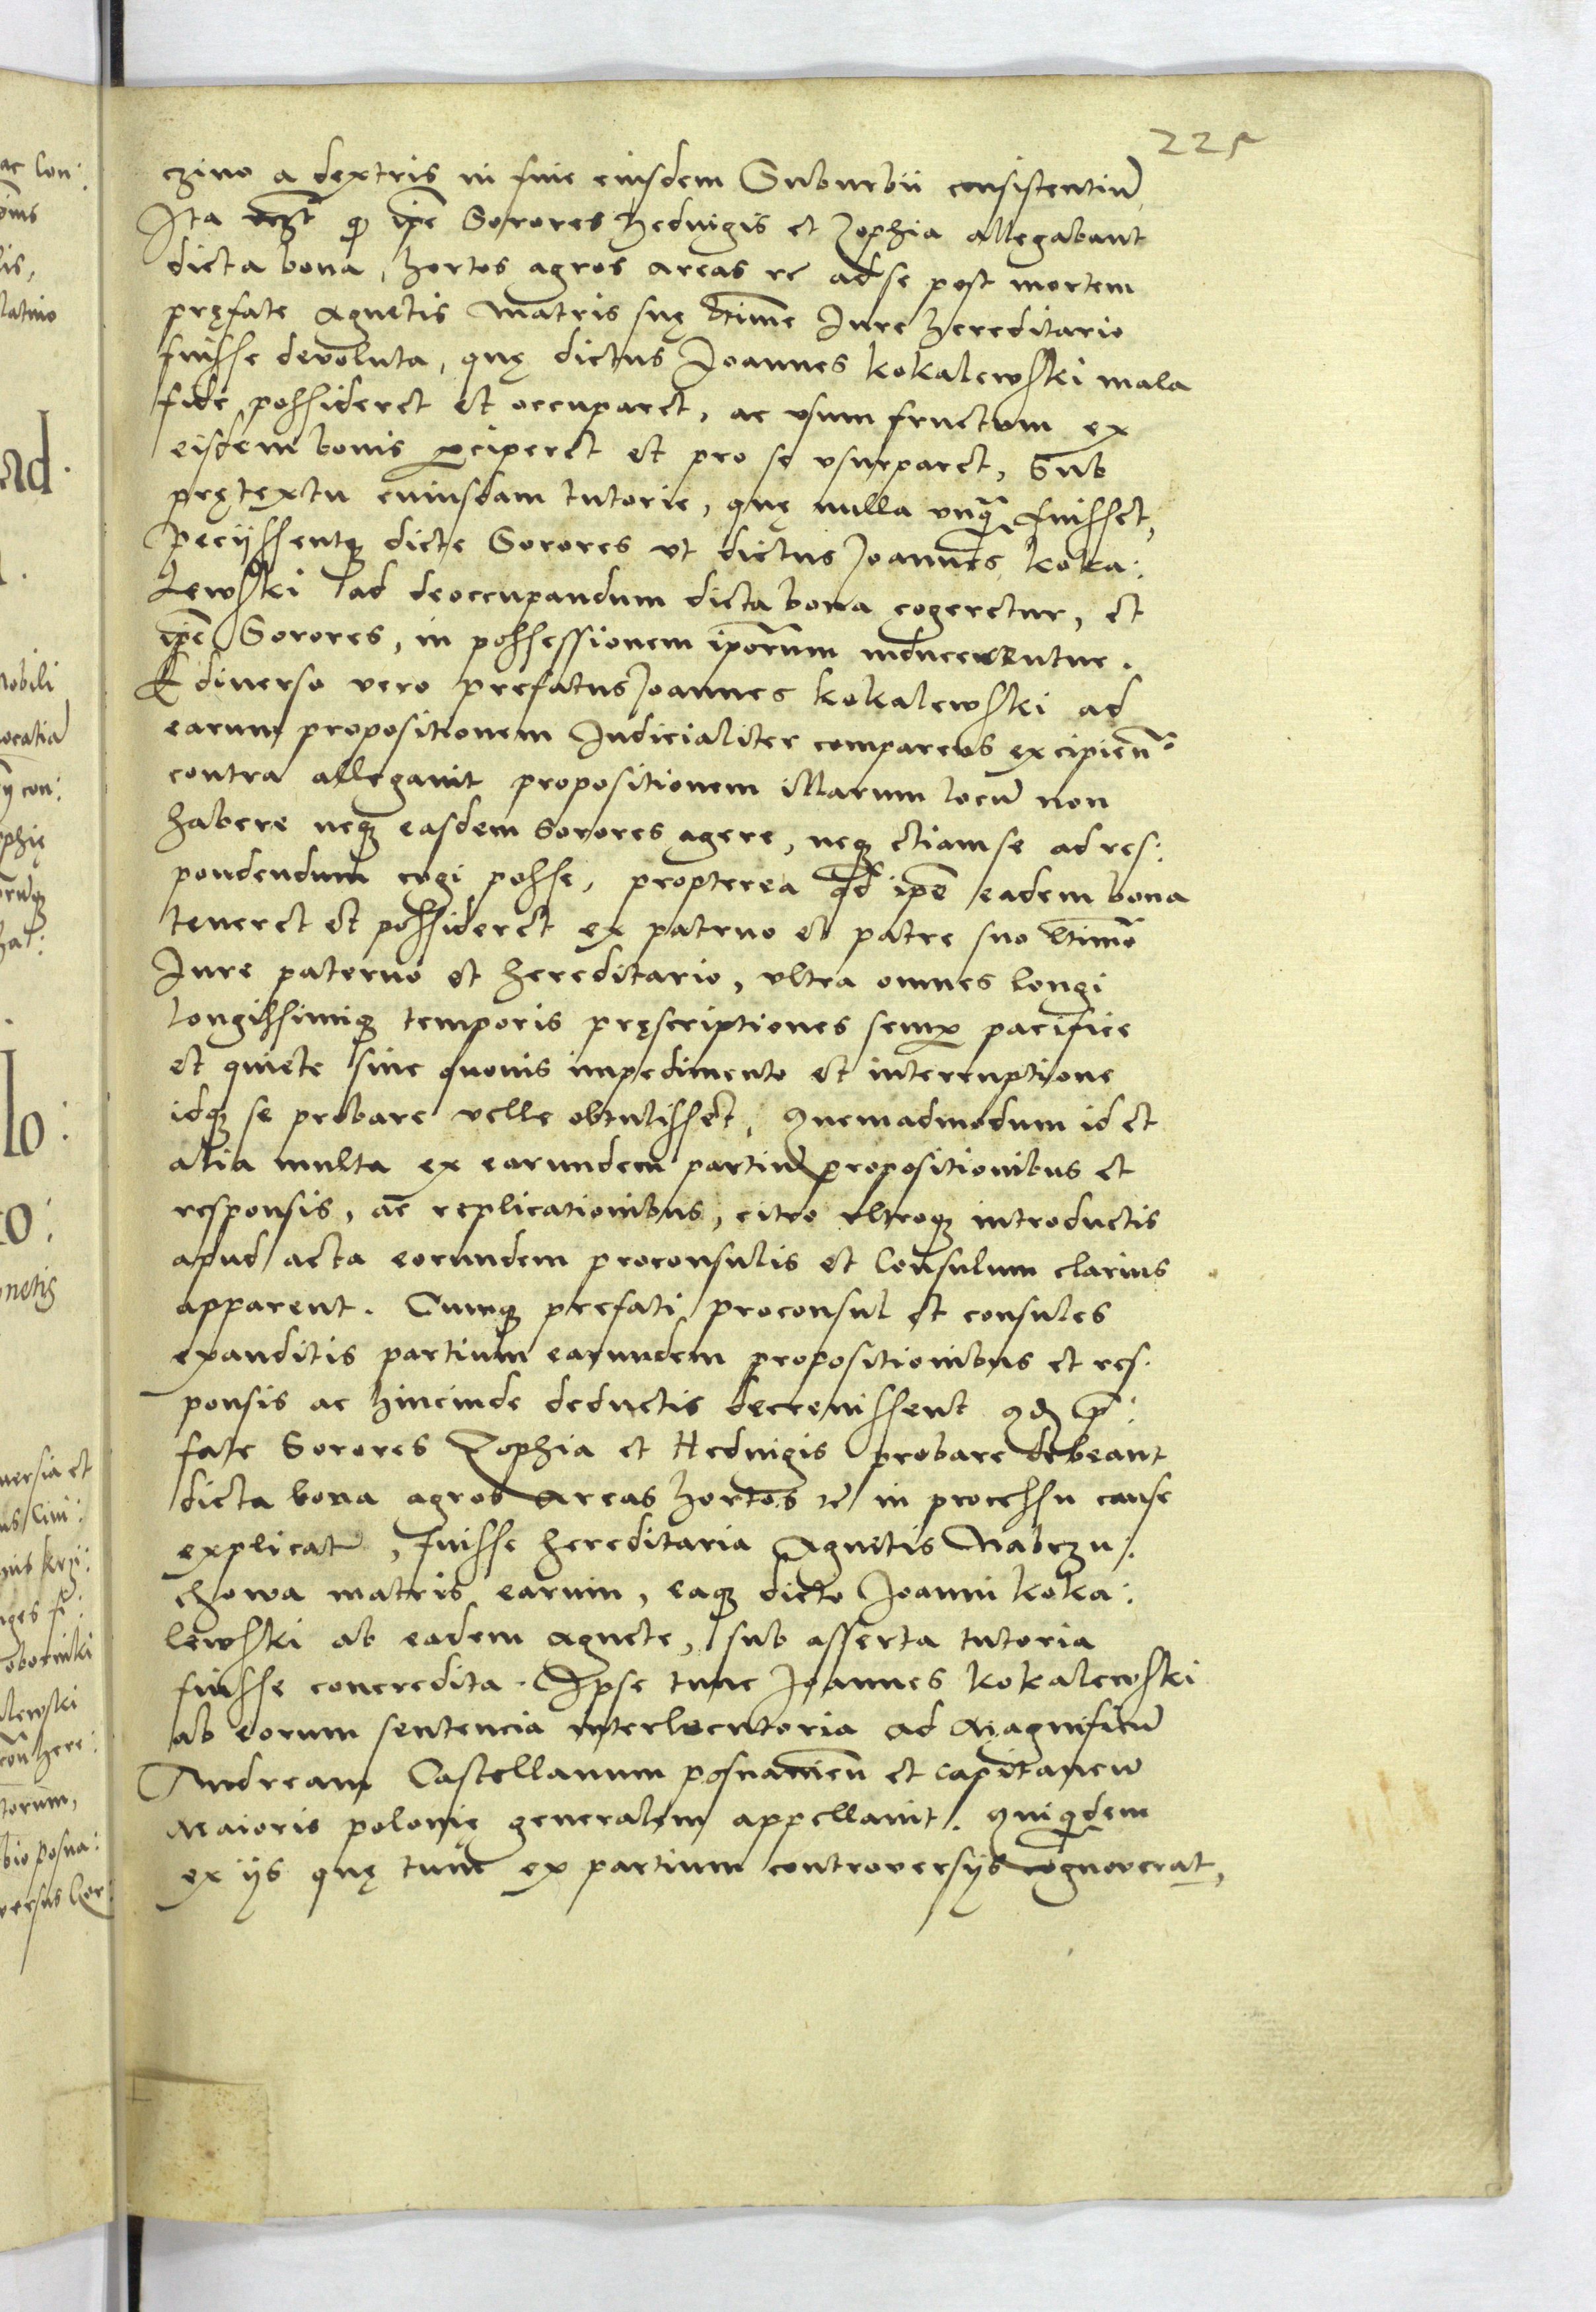 225
czino a dextris in fine eiusdem Suburbii consistentiũ
Ita q ip̃e Sorores Heduigis et Zophia allegabant
dicta bona, hortos agros areas rc ad se post mortem
pręfate Agnetis matris suę Iure hereditario
fuisse deuoluta, quę dictus Joannes kokalewski mala
fide possideret et occuparet, ac vsum fructum ex
eisdem bonis ꝑciperet et pro se vsurparet, Sub
prętextu cuiusdam tutorie, quę nulla vnq̃ fuisset,
Peciissentqꝫ dicte Sorores vt dictus Joannes koka:
Lewski ad deoccupandum dicta bona cogeretur, et
ip̃e Sorores, in possessionem ip̃orum inducerentur.
E diuerso vero prefatus Joannes kokalewski ad
earum propositionem Iudicialiter comparens excipien̄:
contra allegauit propositionem illarum locũ non
habere neqꝫ easdem Sorores agere, neqꝫ etiam se ad res:
pondendum cogi posse, propterea qd̃ ip̃e eadem bona
teneret et possideret ex patruo et patre suo
Iure paterno et hereditario, vltra omnes longi
longissimiqꝫ temporis pręscriptiones semꝑ pacifice
et quiete sine quouis impedimento et interruptione
idqꝫ se probare velle obtulisset, quemadmodum id et
alia multa ex earundem partiũ propositionibus et
responsis, ac replicationibus, citro vltroqꝫ introductis
apud acta eorundem proconsulis et Consulum clarius
apparent. Cumqꝫ prefati proconsul et consules
exauditis partium earundem propositionibus et res:
ponsis ac hincinde deductis decreuissent qd p̃:
fate Sorores Zophia et Heduigis probare debeant
dicta bona agros areas hortos rc̃ in processu cause
explicat, fuisse hereditaria Agnetis Nabrzu:
chowa matris earum, eaqꝫ dicto Joanni koka:
lewski ab eadem Agnete, sub asserta tutoria
fuisse concredita. Ipse tunc Joannes kokalewski
ab eorum sentencia interlocutoria ad Magnificũ
Andream Castellanum posnanien̄ et capitaneũ
Maioris polonię generalem appellauit. Quiquidem
ex iis quę tunc ex partium controuersiis cognouerat,